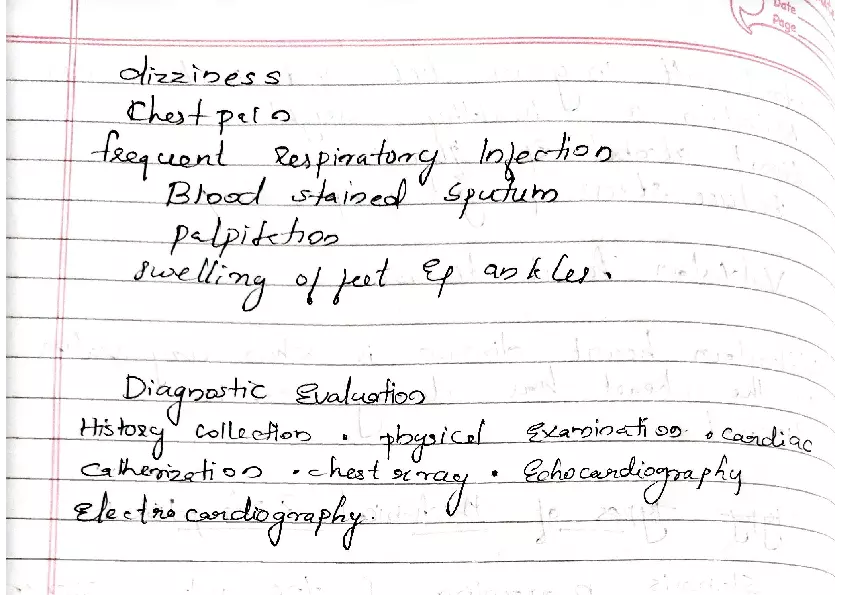 Date
Page
dizziness
Chest pain
frequent Respiratory Infection
Blood stained sputum
palpitation
swelling of feet & ankles.
Diagnostic Evaluation
History collection . physical Examination . cardiac
catherization . chest xray . Echocardiography
Electro cardiography.